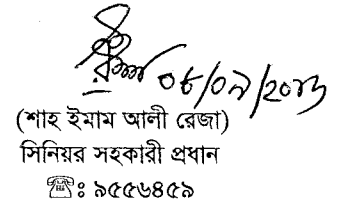 ০৮/০৯/২০১৩
(শাহ ইমাম আলী রেজা)
সিনিয়র সহকারী প্রধান
☎: ৯৫৫৬৪৫৯